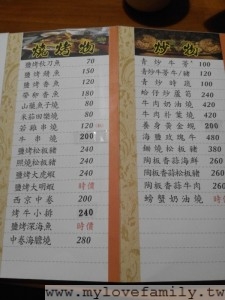 燒烤物
鹽烤秋刀魚 70
鹽烤鯖魚 120
鹽烤香魚 150
帶卵香魚 180
山藥魚子燒 80
米茄田樂燒 80
蒜雞串燒 120
牛串燒 200
鹽烤松板豬 240
照燒松板豬 240
鹽烤大虎蝦 240
鹽烤大明蝦 時價
西京中卷 240
烤牛小排 240
鹽烤深海魚 時價
中卷海膽燒 280
炒物
青炒牛蒡 100
青炒牛蒡牛/豬 120
青炒時蔬 100
蛤仔炒蘆筍 200
牛肉奶油燒 200
養身黃金蜆 200
海鹽玫瑰牛 480
鐵燒松板豬 240
陶板香蒜海鮮 260
陶板香蒜松板豬 260
陶板香蒜牛肉 260
螃蟹奶油燒 時價
www.mylovefamily.tw